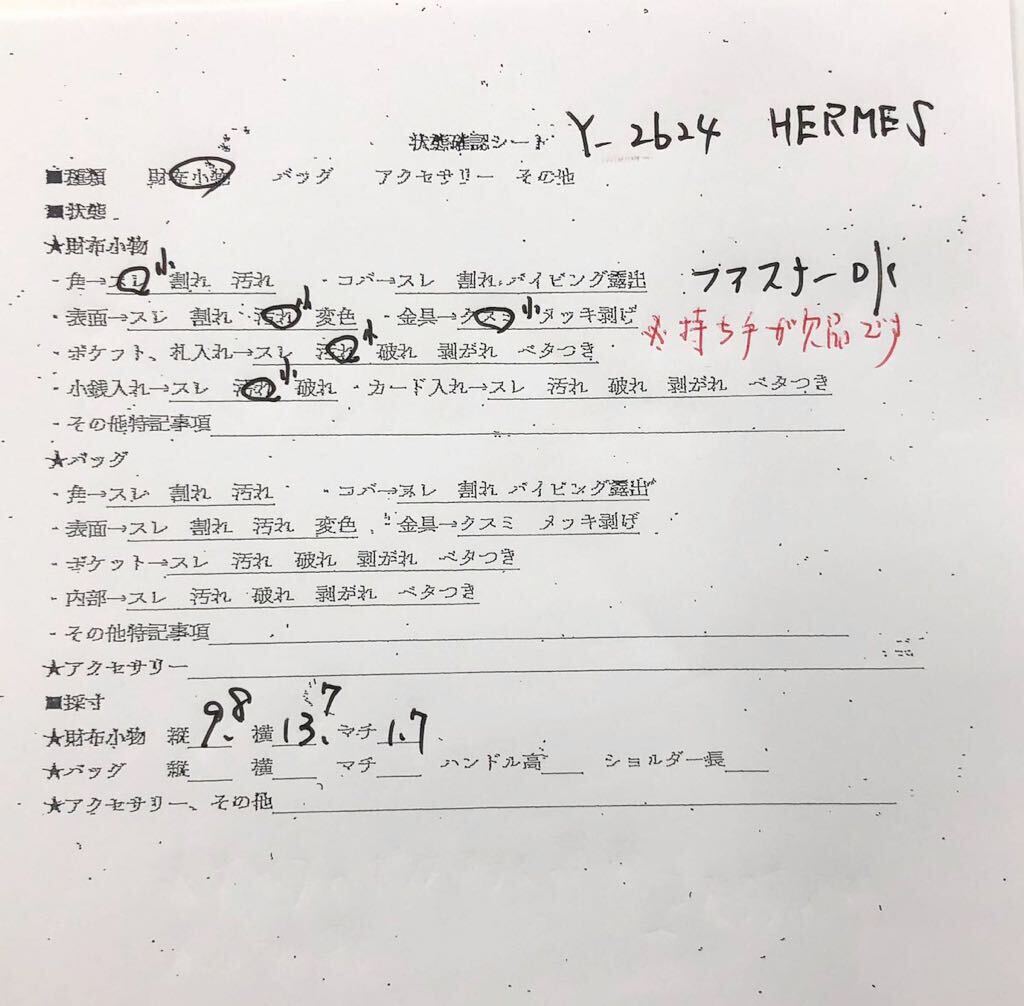 状態確認シート Y-2624 HERMES
■種類 財布小物 バッグ アクセサリー その他
■状態
★財布小物
・角→スレ小 割れ 汚れ ・コバ→スレ 割れ パイピング露出 ファスナーO/K
・表面→スレ 割れ 汚れ小 変色 ・金具→クスミ小 メッキ剥げ
※持ち手が欠品です
・ポケット、札入れ→スレ 汚れ小 破れ 剥がれ ベタつき
・小銭入れ→スレ 汚れ小 破れ ・カード入れ→スレ 汚れ 破れ 剥がれ ベタつき
・その他特記事項
★バッグ
・角→スレ 割れ 汚れ ・コバ→スレ 割れ パイピング露出
・表面→スレ 割れ 汚れ 変色 ・金具→クスミ メッキ剥げ
・ポケット→スレ 汚れ 破れ 剥がれ ベタつき
・内部→スレ 汚れ 破れ 剥がれ ベタつき
・その他特記事項
★アクセサリー
■採寸
★財布小物 縦9.8 横13.7 マチ1.7
★バッグ 縦 横 マチ ハンドル高 ショルダー長
★アクセサリー、その他